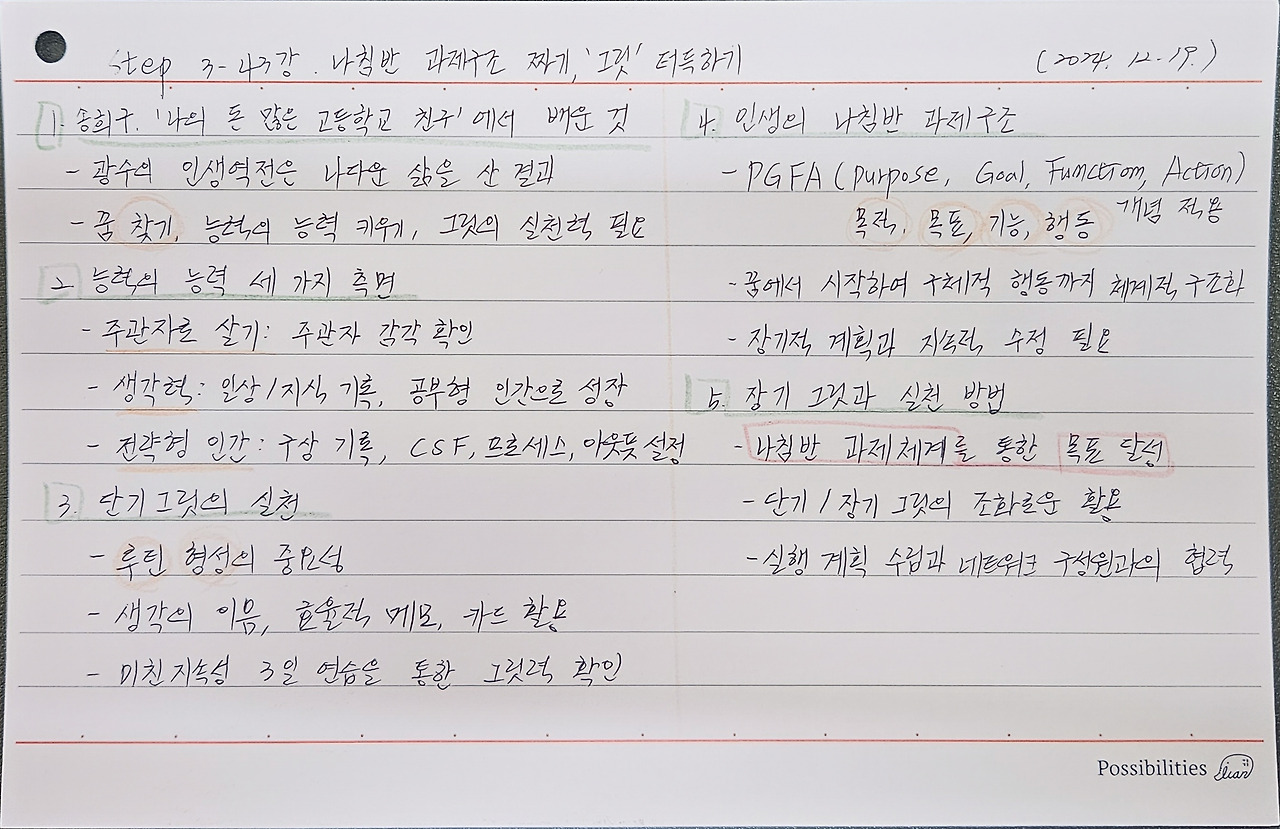 Step 3-43강. 나침반 과제구조 짜기, '그릿' 터득하기 (2024. 12. 19.)
1. 송희구. '나의 돈 많은 고등학교 친구'에서 배운 것
- 광수의 인생역전은 나다운 삶을 산 결과
- 꿈 찾기, 능력의 능력 키우기, 그릿의 실천력 필요
2. 능력의 능력 세 가지 측면
- 주관자로 살기: 주관자 감각 확인
- 생각력: 인상/지식 기록, 공부형 인간으로 성장
- 전략형 인간: 구상 기록, CSF, 프로세스, 아웃풋 설정
3. 단기 그릿의 실천
- 루틴 형성의 중요성
- 생각의 이음, 효율적 메모, 카드 활용
- 미친 지속성 3일 연습을 통한 그릿력 확인
4. 인생의 나침반 과제구조
- PGFA (Purpose, Goal, Function, Action)
목적, 목표, 기능, 행동 개념 적용
- 꿈에서 시작하여 구체적 행동까지 체계적 구조화
- 장기적 계획과 지속적 수정 필요
5. 장기 그릿과 실천 방법
- 나침반 과제체계를 통한 목표 달성
- 단기/장기 그릿의 조화로운 활용
- 실행 계획 수립과 네트워크 구성원과의 협력
Possibilities